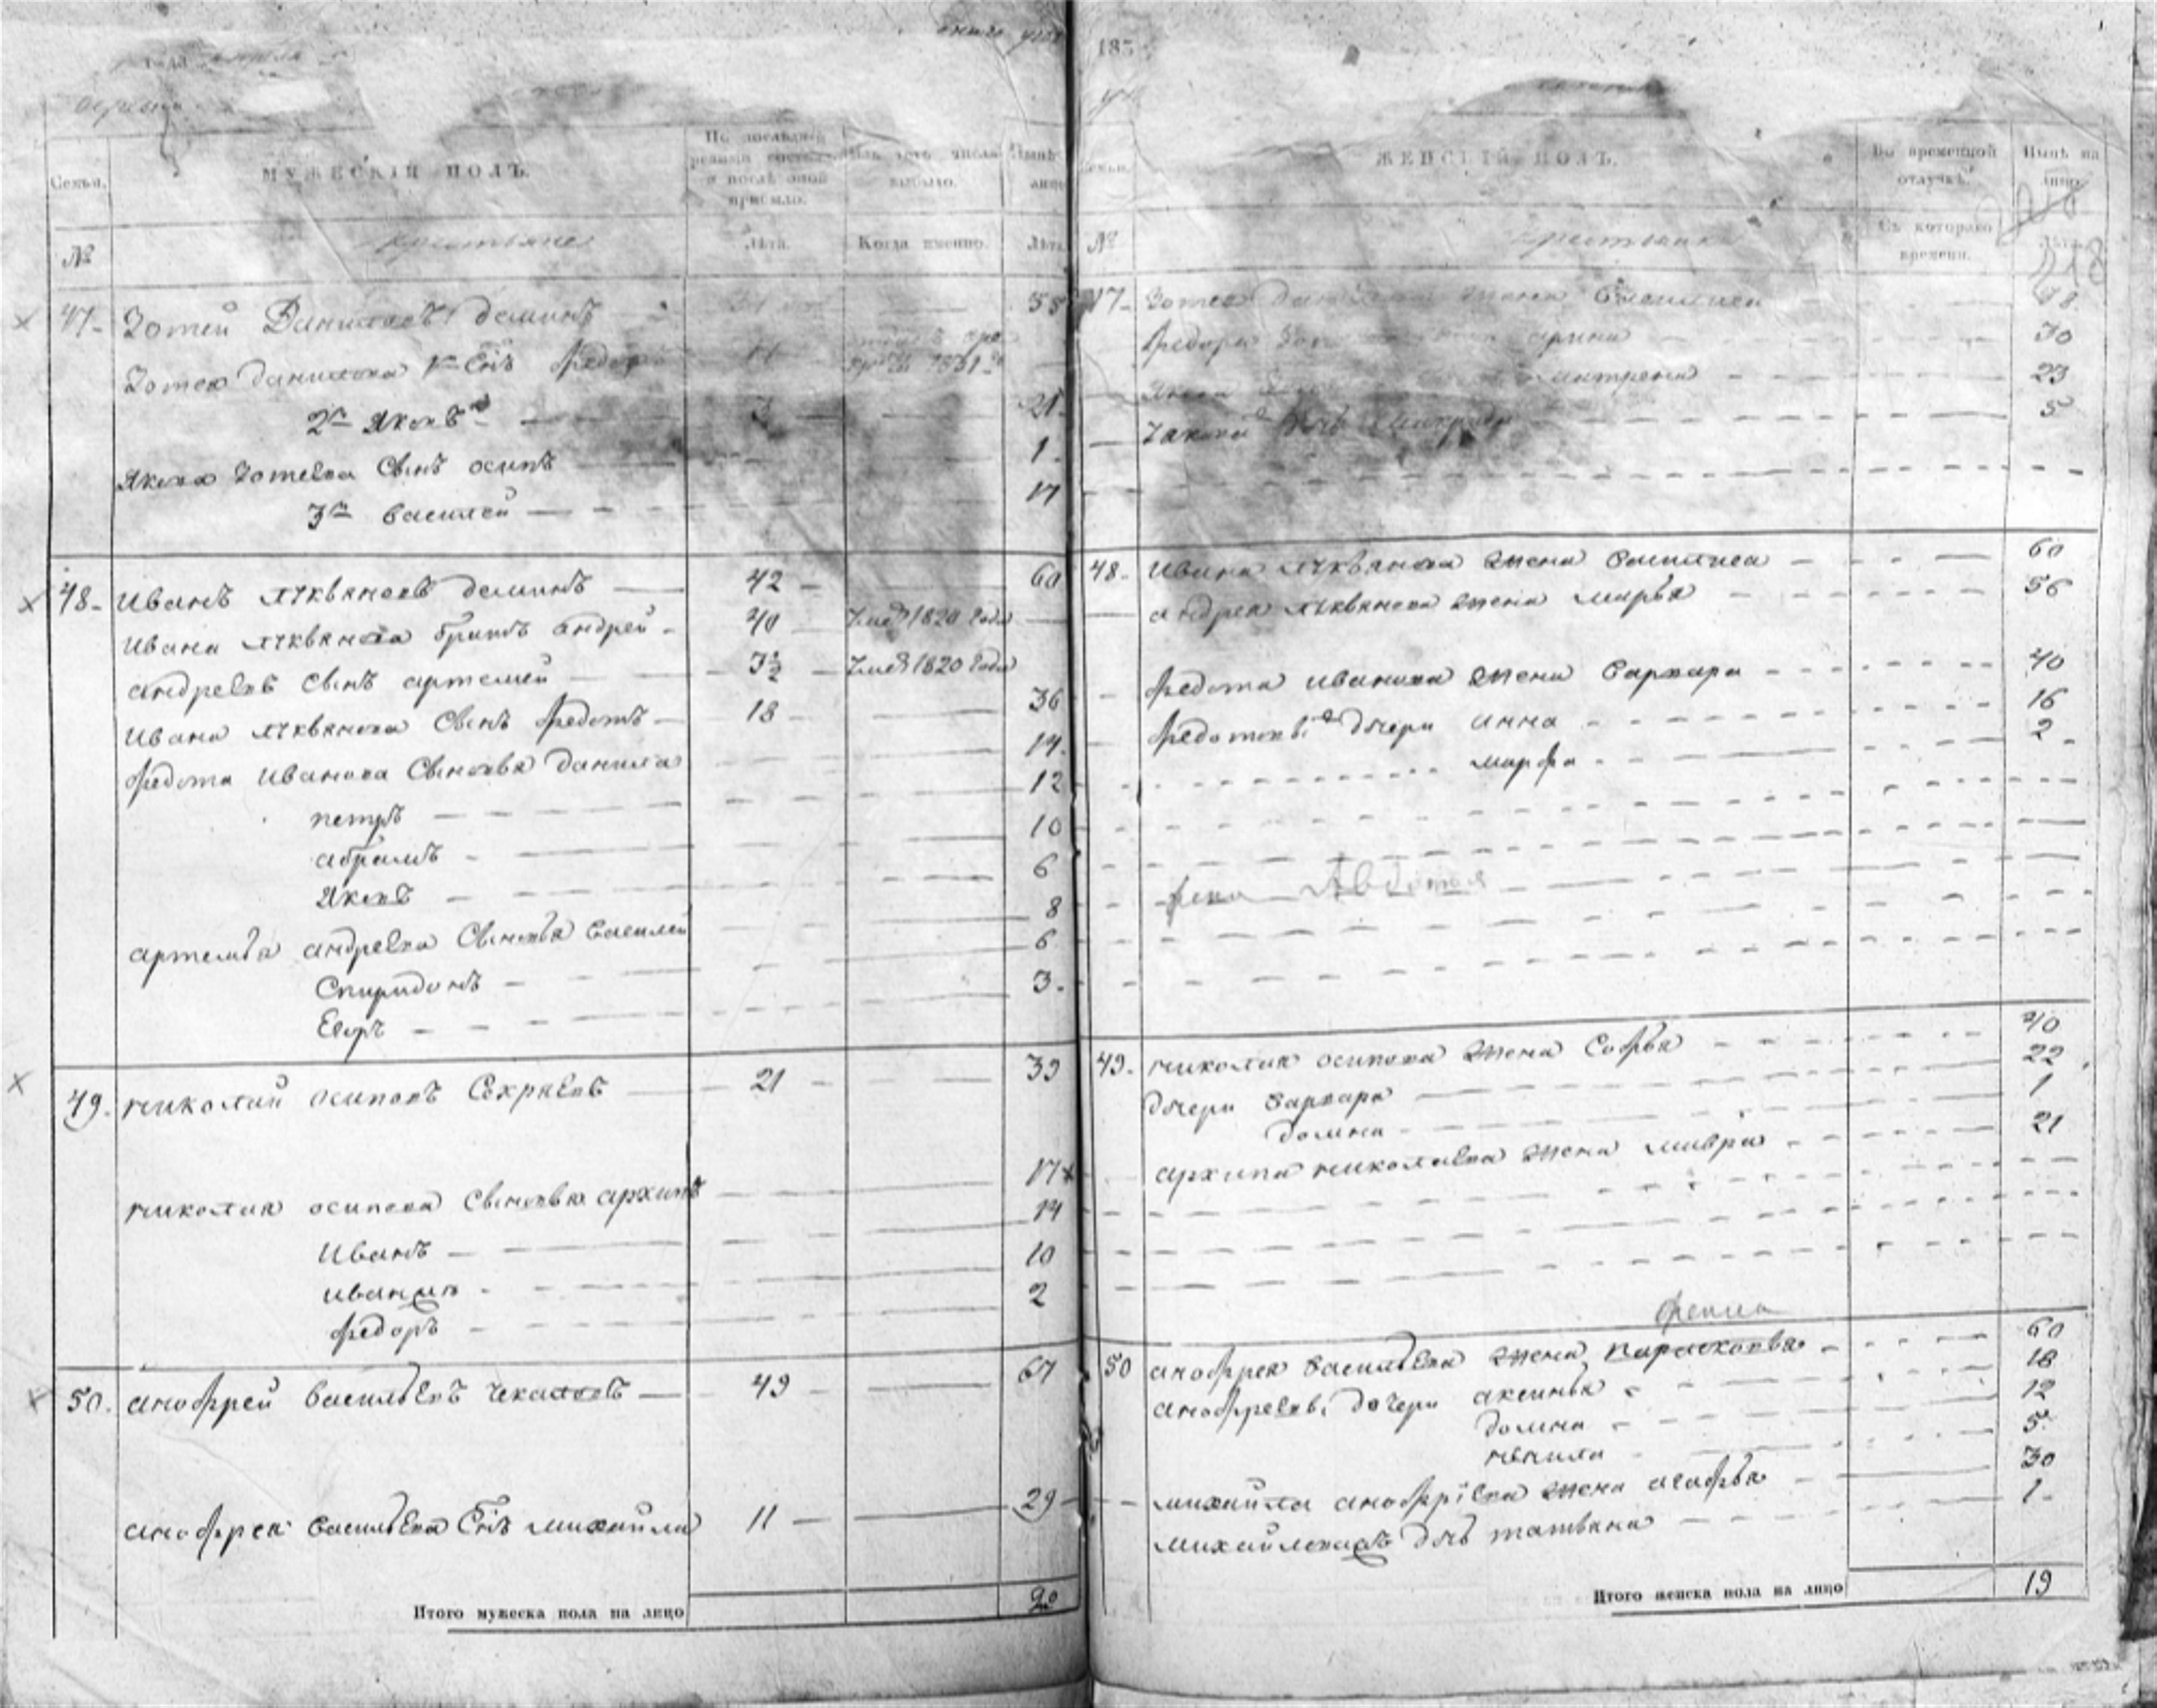 183
МУЖЕСКІЙ ПОЛЪ.
Семья.
По последней ревизіи состояло и после оной прибыло.
Изъ того числа выбыло.
Ныне на лицо
№
крестьяне
Лета.
Когда именно.
Лета
47 Зотей Даниловъ деминъ 55
Зотея данилова 1й Снъ федоръ
2й Яковъ 3 21
Якова Зотеева Сынъ осипъ 1
3й василей 17
48 Иванъ лукьяновъ деминъ 42 60
Ивана лукьянова братъ андрей 40 умер 1820 года
андреевъ Сынъ артемей 3½ умер 1820 года
Ивана лукьянова Сынъ федотъ 18 36
федота Иванова Сыновья данила 14
петръ 12
абрамъ 10
Яковъ 6
артемья андреева Сыновья василей 8
Спиридонъ 6
Егоръ 3
49. николай осиповъ 21 39
николая осипова Сыновья архипъ 17
Иванъ 14
10
федоръ 2
50. анофрей васильевъ чекаловъ 49 67
анофрея васильева Снъ михайла 11 29
Итого мужеска пола на лицо 20
ЖЕНСКІЙ ПОЛЪ.
Во временной отлучке.
Ныне на лицо.
№
крестьянки
Съ котораго времени.
Лета.
218
47 Зотея данилова жена Василиса 48
федора арина 30
Якова матрена 23
дочь 5
48. Ивана лукьянова жена василиса 60
андрея лукьянова жена марья 56
федота иванова жена варвара 40
федотовы дочери анна 16
марфа 2
Авдотья
49. николая осипова жена Софья 40
дочери варвара 22
домна 1
архипа николаева жена мавра 21
50 анофрея васильева жена парасковья 60
анофреевы дочери аксинья 18
домна 12
ненила 5
михайла анофріева жена агафья 30
михайловасъ дочь татьяна 1
Итого женска пола на лицо 19